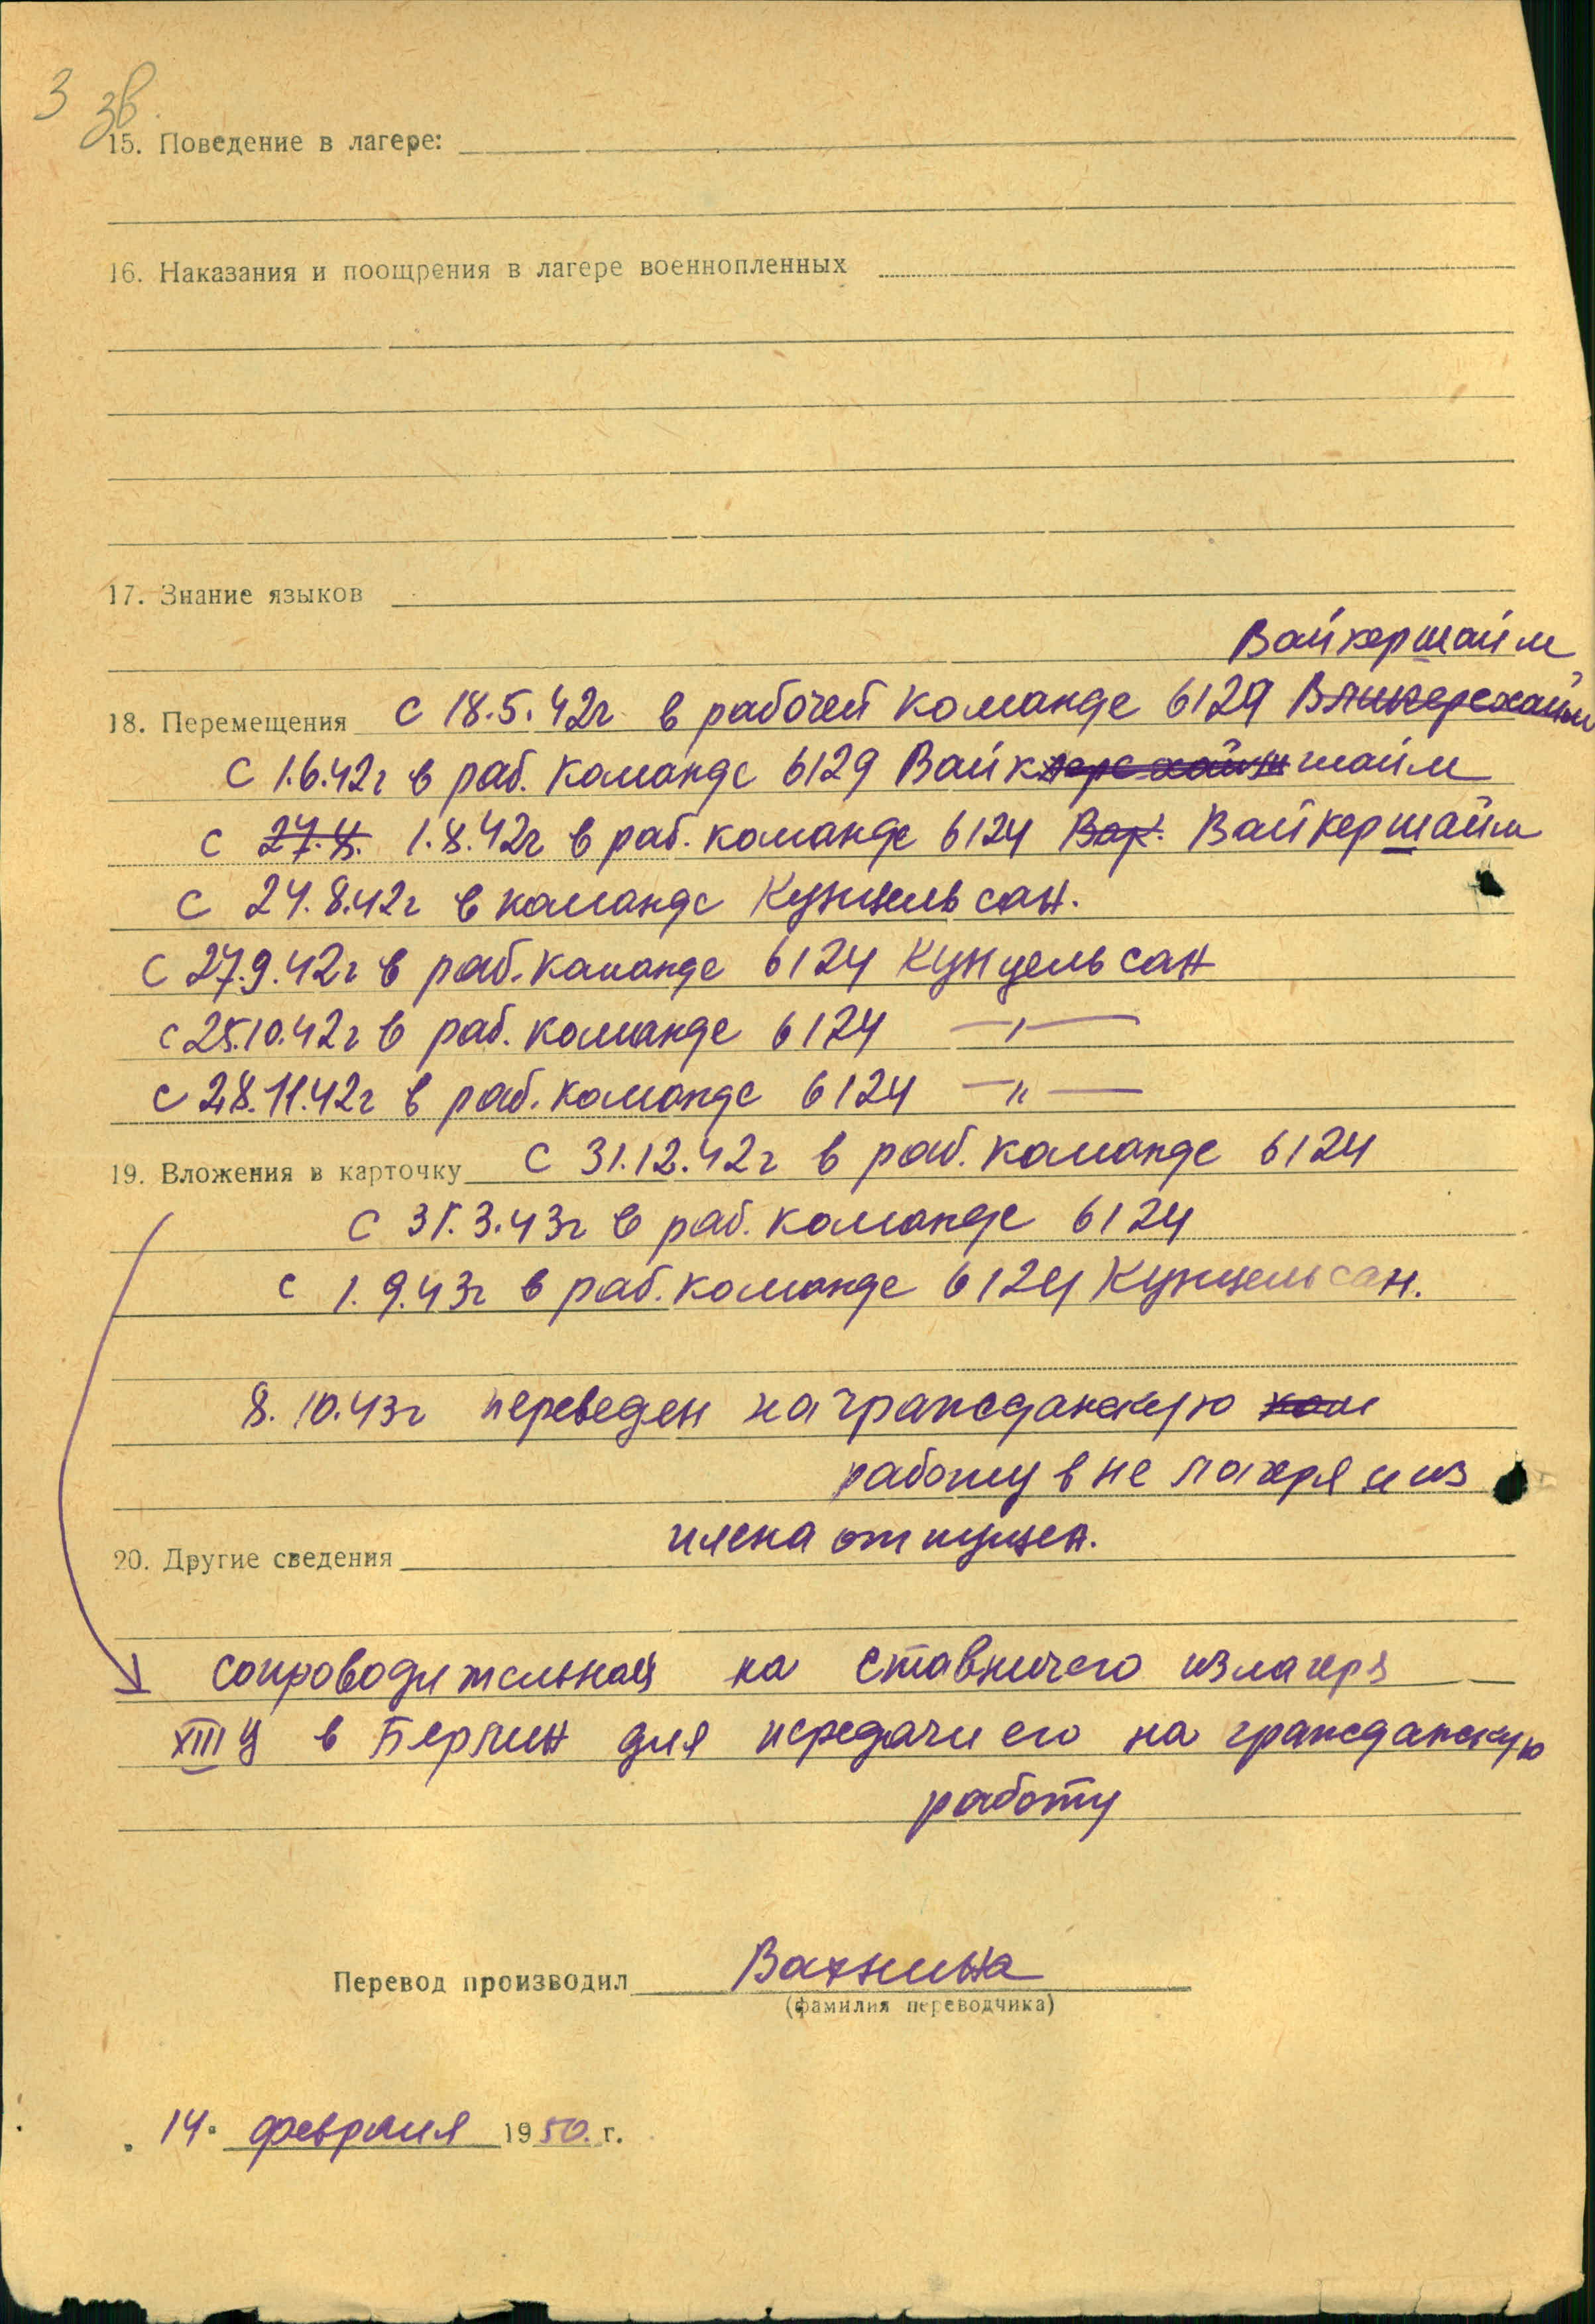 3 зв.
15. Поведение в лагере:
16. Наказания и поощрения в лагере военнопленных
17. Знание языков
Вайкершайм
18. Перемещения с 18.5.42г в рабочей команде 6129
с 1.6.42г в раб. команде 6129 Вайк шайм
с 27.8. 1.8.42г в раб. команде 6124 Вар. Вайкершайм
с 24.8.42г в команде Кунцельсан.
с 27.9.42г в раб. команде 6124 Кунцельсан
с 25.10.42г в раб. команде 6124 —〃—
с 28.11.42г в раб. команде 6124 —〃—
19. Вложения в карточку с 31.12.42г в раб. команде 6124
с 31.3.43г в раб. команде 6124
с 1.9.43г в раб. команде 6124 Кунцельсан.
8.10.43г переведен на гражданскую ком
работу в не лагеря и из
плена отпущен.
20. Другие сведения
сопроводительная на ставшего из лагеря
XIII Ц в Берлин для передачи его на гражданскую
работу
Перевод производил Вахнина
(фамилия переводчика)
14. февраля 1950. г.